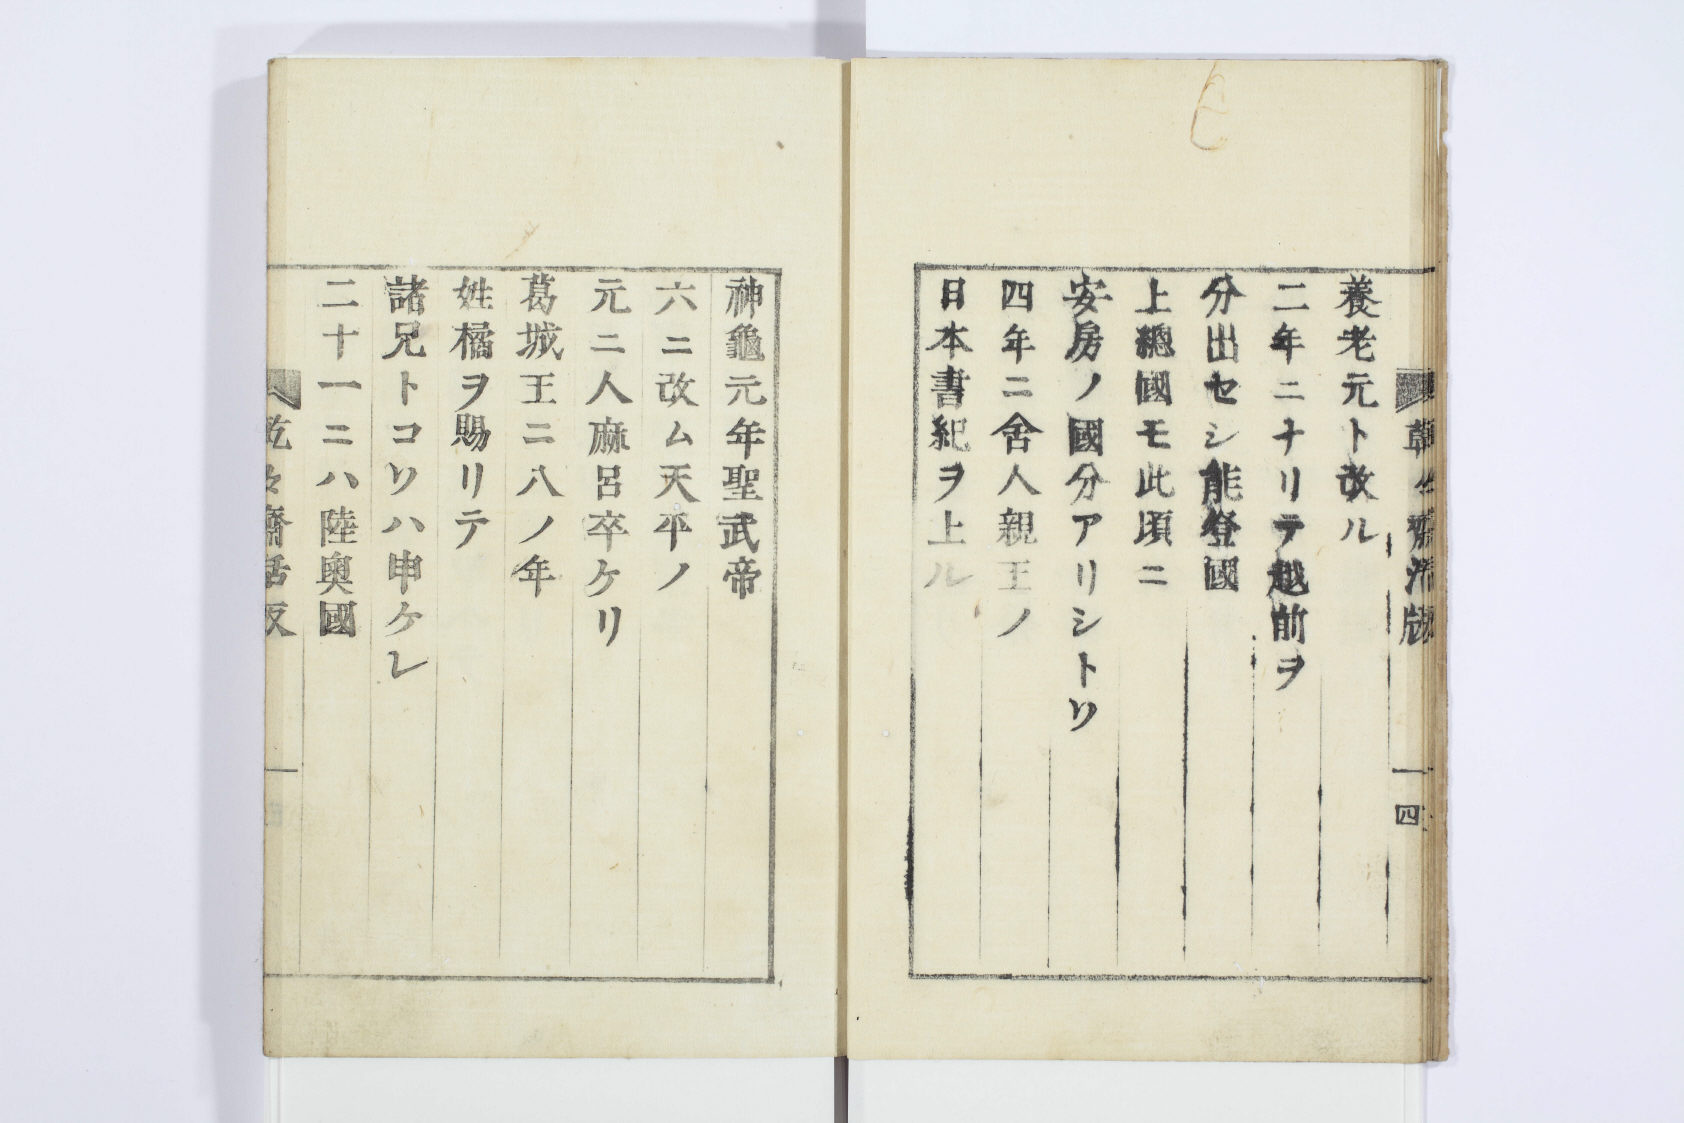 養老元ト改ル
二年ニナリテ越前ヲ
分出セシ能登國
上總國モ此頃ニ
安房ノ國分アリシトソ
四年ニ舍人親王ノ
日本書紀ヲ上ル
四
神龜元年聖武帝
六ニ改ム天平ノ
元ニ人麻呂卒ケリ
葛城王ニ八ノ年
姓橘ヲ賜リテ
諸兄トコソハ申ケレ
二十一ニハ陸奥國
乾々齋活版